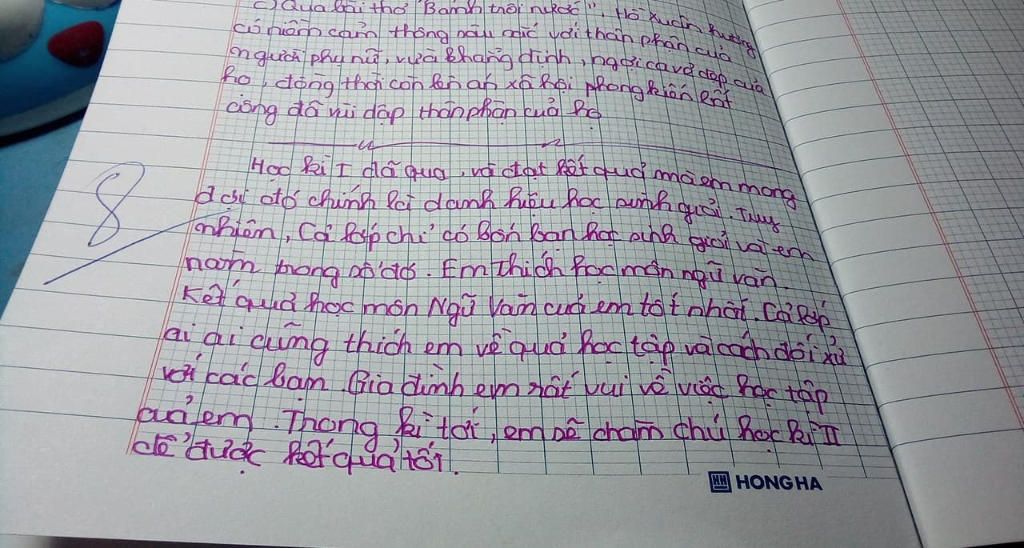 c) Qua bài thơ "Bánh trôi nước", Hồ Xuân Hương
có niềm cảm thông sâu sắc với thân phận của
người phụ nữ, vừa khẳng định, ngợi ca vẻ đẹp của
họ, đồng thời còn lên án xã hội phong kiến bất
công đã vùi dập thân phận của họ
Học kì I đã qua, và đạt kết quả mà em mong
đợi đó chính là danh hiệu học sinh giỏi. Tuy
nhiên, Cả lớp chỉ có bốn bạn học sinh giỏi và em
nằm trong số đó. Em thích học môn ngữ văn.
Kết quả học môn Ngữ Văn của em tốt nhất. Cả lớp
ai ai cũng thích em về quả học tập và cách đối xử
với các bạn. Gia đình em rất vui về việc học tập
của em. Trong kì tới, em sẽ chăm chú học kì II
để được kết quả tốt.
8
HH HONG HA